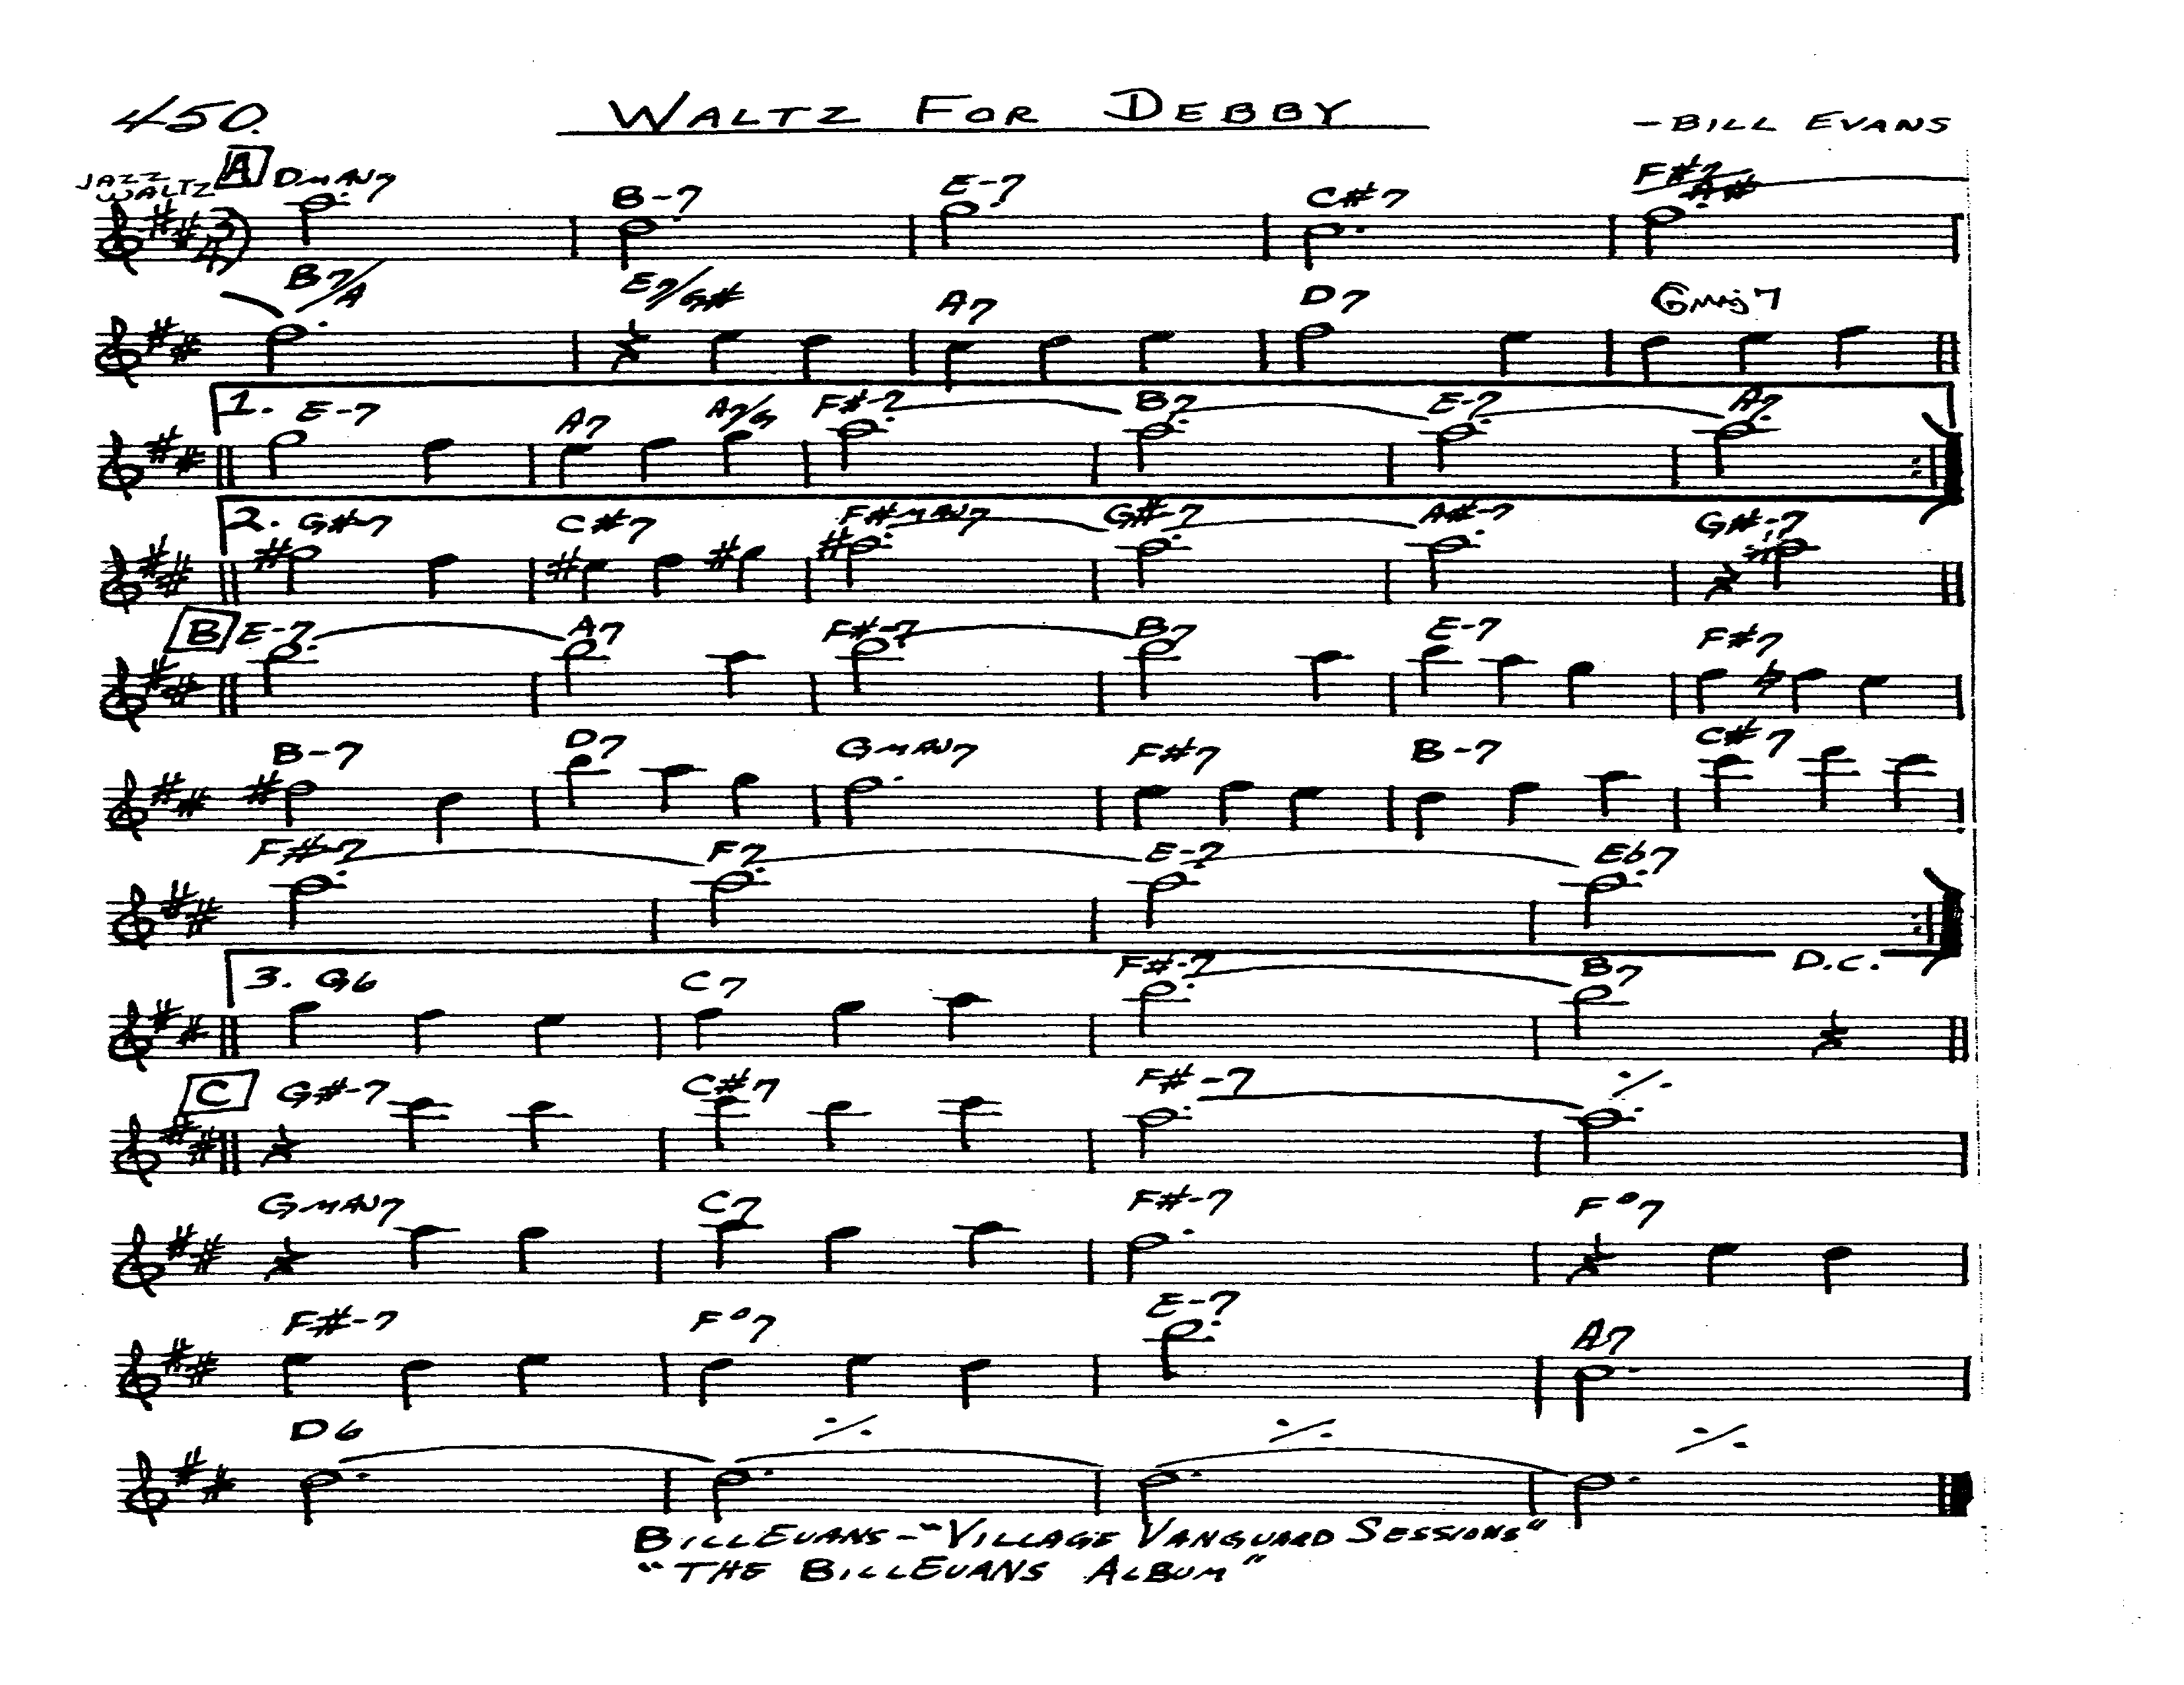 450. WALTZ FOR DEBBY -BILL EVANS
JAZZ WALTZ
A DMAJ7 B-7 E-7 C#7 F#7/A#
B7/A E7/G# A7 D7 Gmaj7
1. E-7 A7 A7/G F#-7 B7 E-7 A7
2. G#-7 C#7 F#MAJ7 G#-7 A#-7 G#-7
B E-7 A7 F#-7 B7 E-7 F#7
B-7 D7 GMAJ7 F#7 B-7 C#7
F#-7 F7 E-7 Eb7
D.C.
3. G6 C7 F#-7 B7
C G#-7 C#7 F#-7
GMAJ7 C7 F#-7 F°7
F#-7 F°7 E-7 A7
D6
BILL EVANS - "VILLAGE VANGUARD SESSIONS"
"THE BILL EVANS ALBUM"